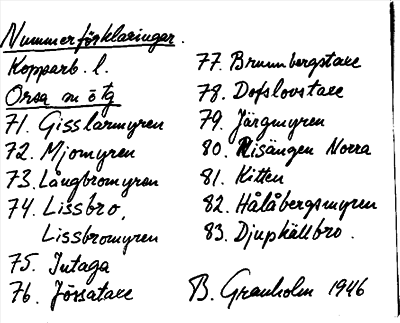 Nummerförklaringar.
Kopparb. l.
Orsa m ö tg
71. Gisslarmyren
72. Mjomyren
73. Långbromyren
74. Lissbro,
Lissbromyren
75. Intaga
76. Jössatace
77. Brunnbergstace
78. Dofslovstace
79. Järgmyren
80. Risängen Norra
81. Kitten
82. Hålåbergsmyren
83. Djupkällbro.
B. Granholm 1946